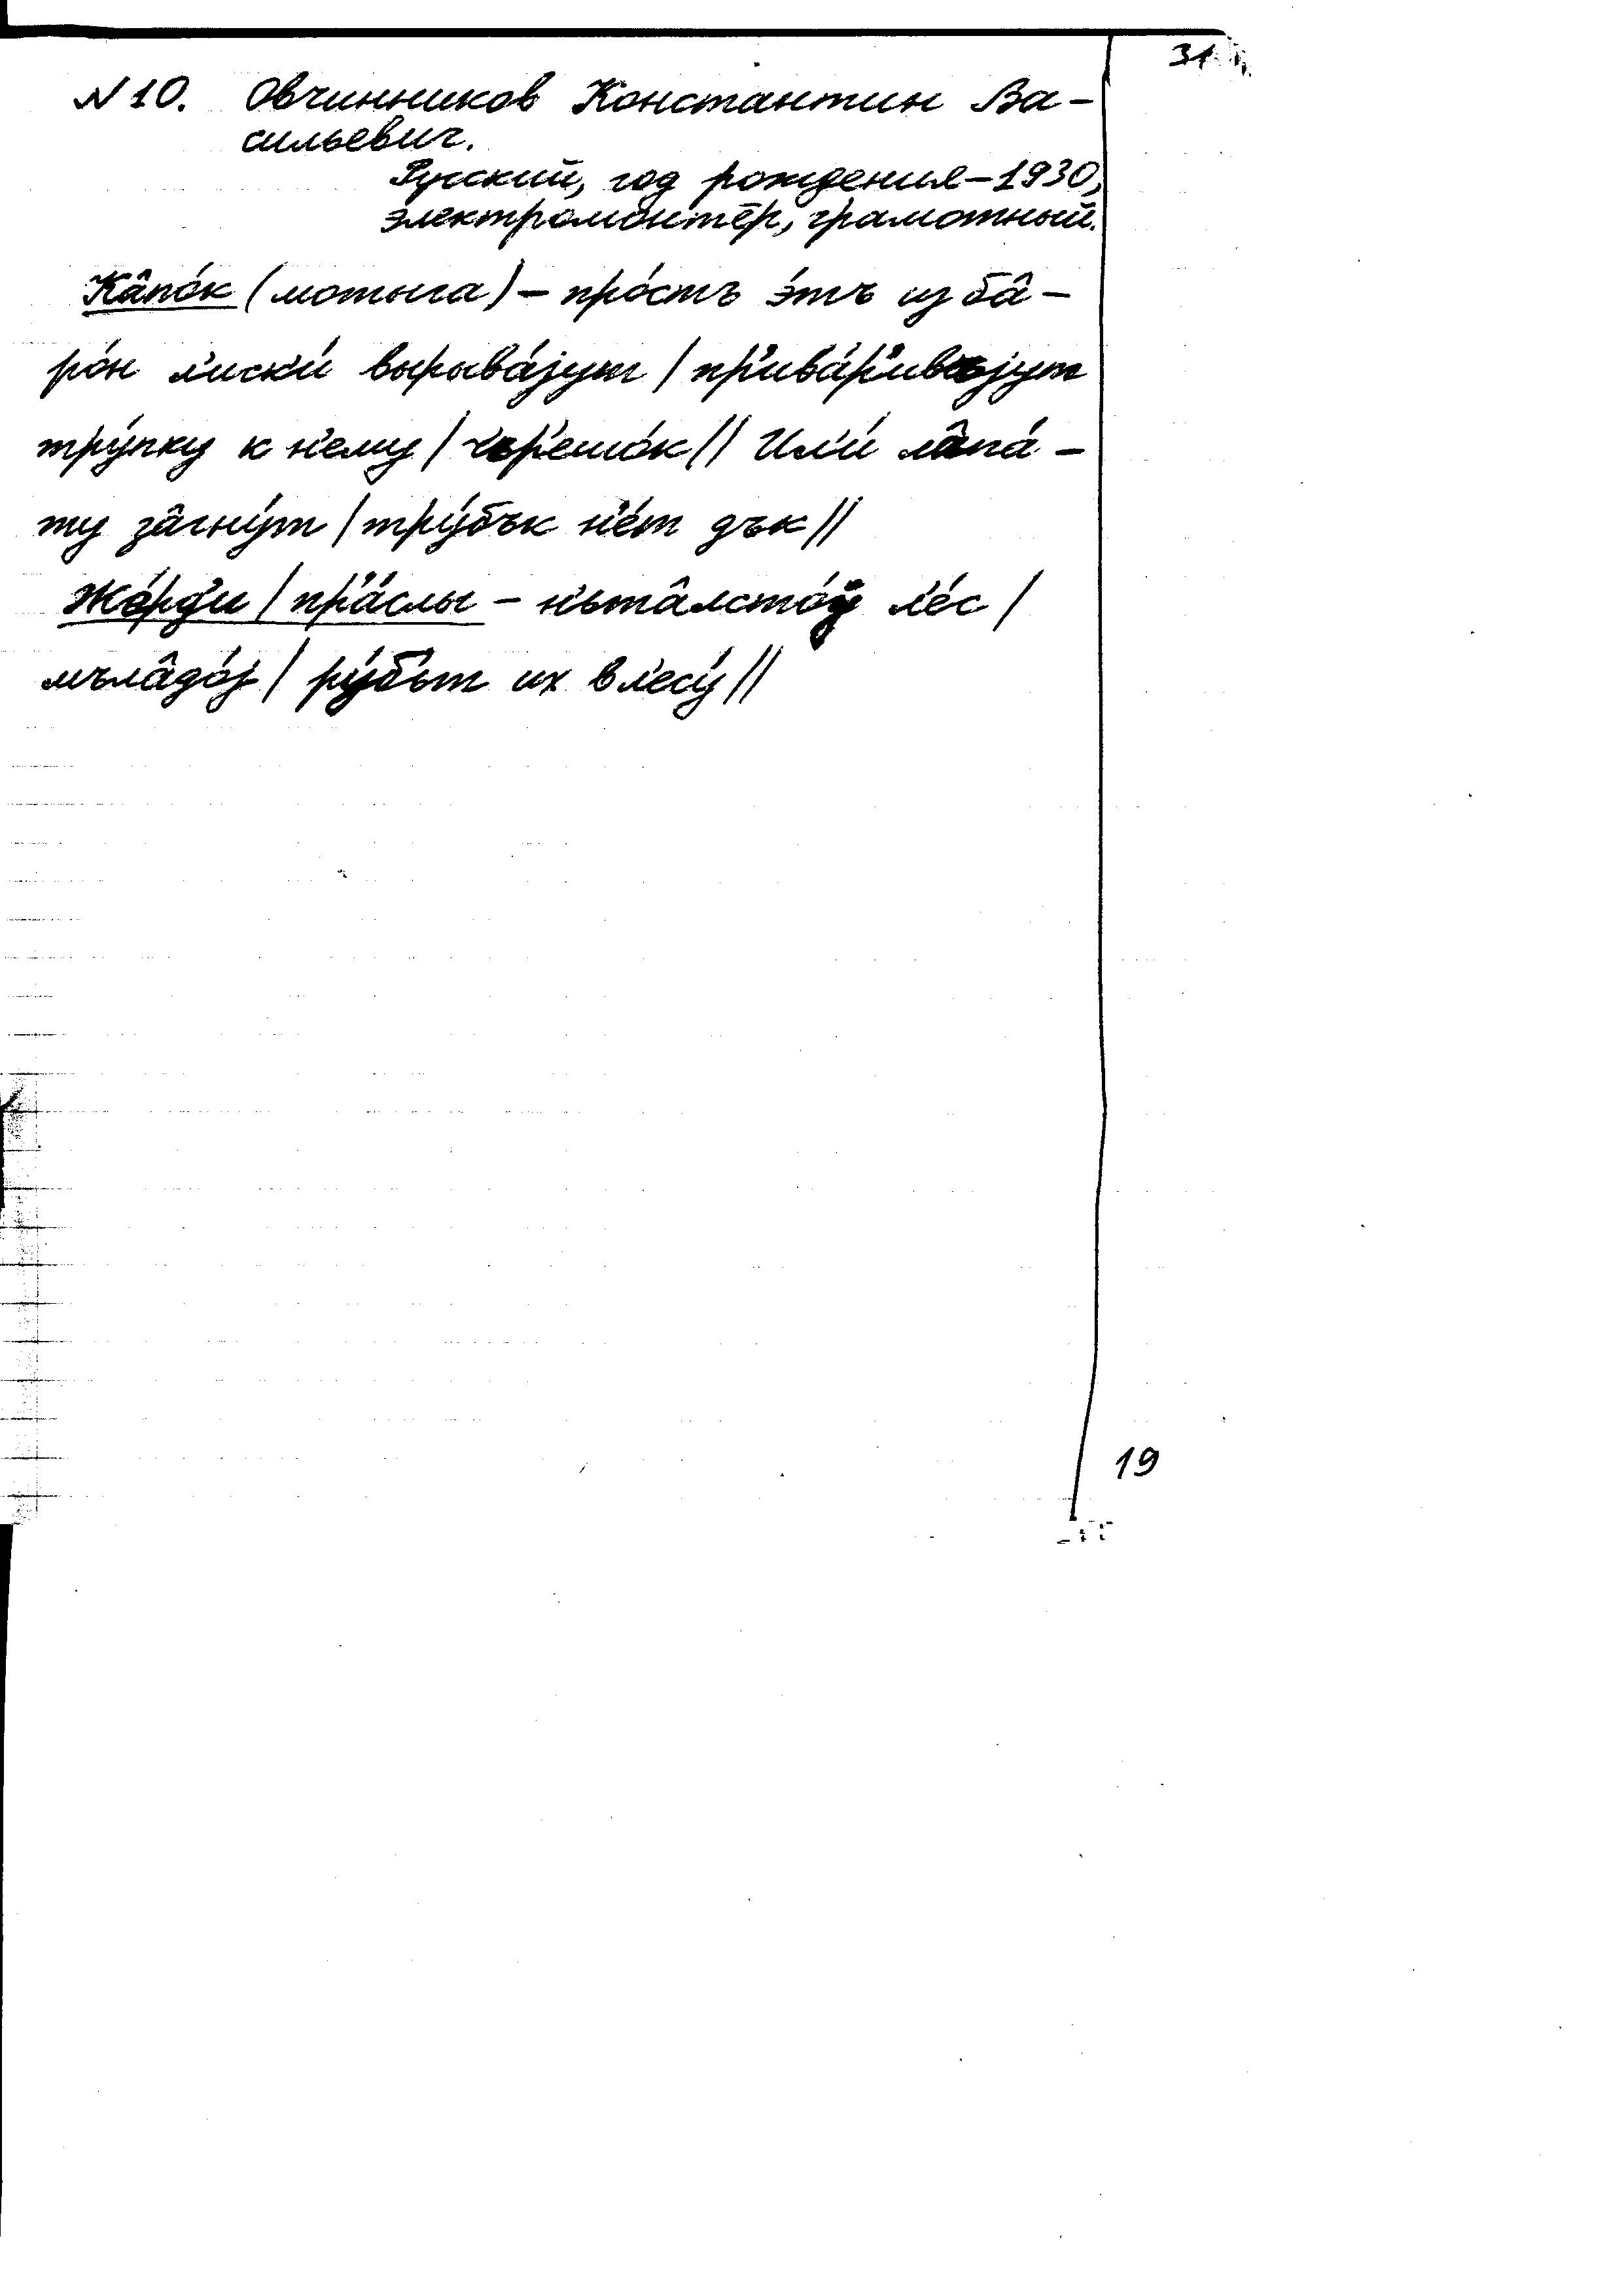 31
N 10. Овчинников Константин Ва-
сильевич.
Русский, год рождения – 1930,
электромонтёр, грамотный.
Ка̂по́к (мотыга) – про́стъ э́тъ из ба̂-
ро́н л'иск'и́ вырыва́јут / пр'ива́р'ивъјут
тру́пку к н'ему / чьр'ешо́к // Ил'и́ ла̂па́-
ту за̂гну́т / тру́бък н'е́т дък //
Же́рд'и / пр'а́слы – н'ьта̂лсто́й л'е́с /
мъла̂до́ј / ру́б'ьт их в л'есу́ //
19